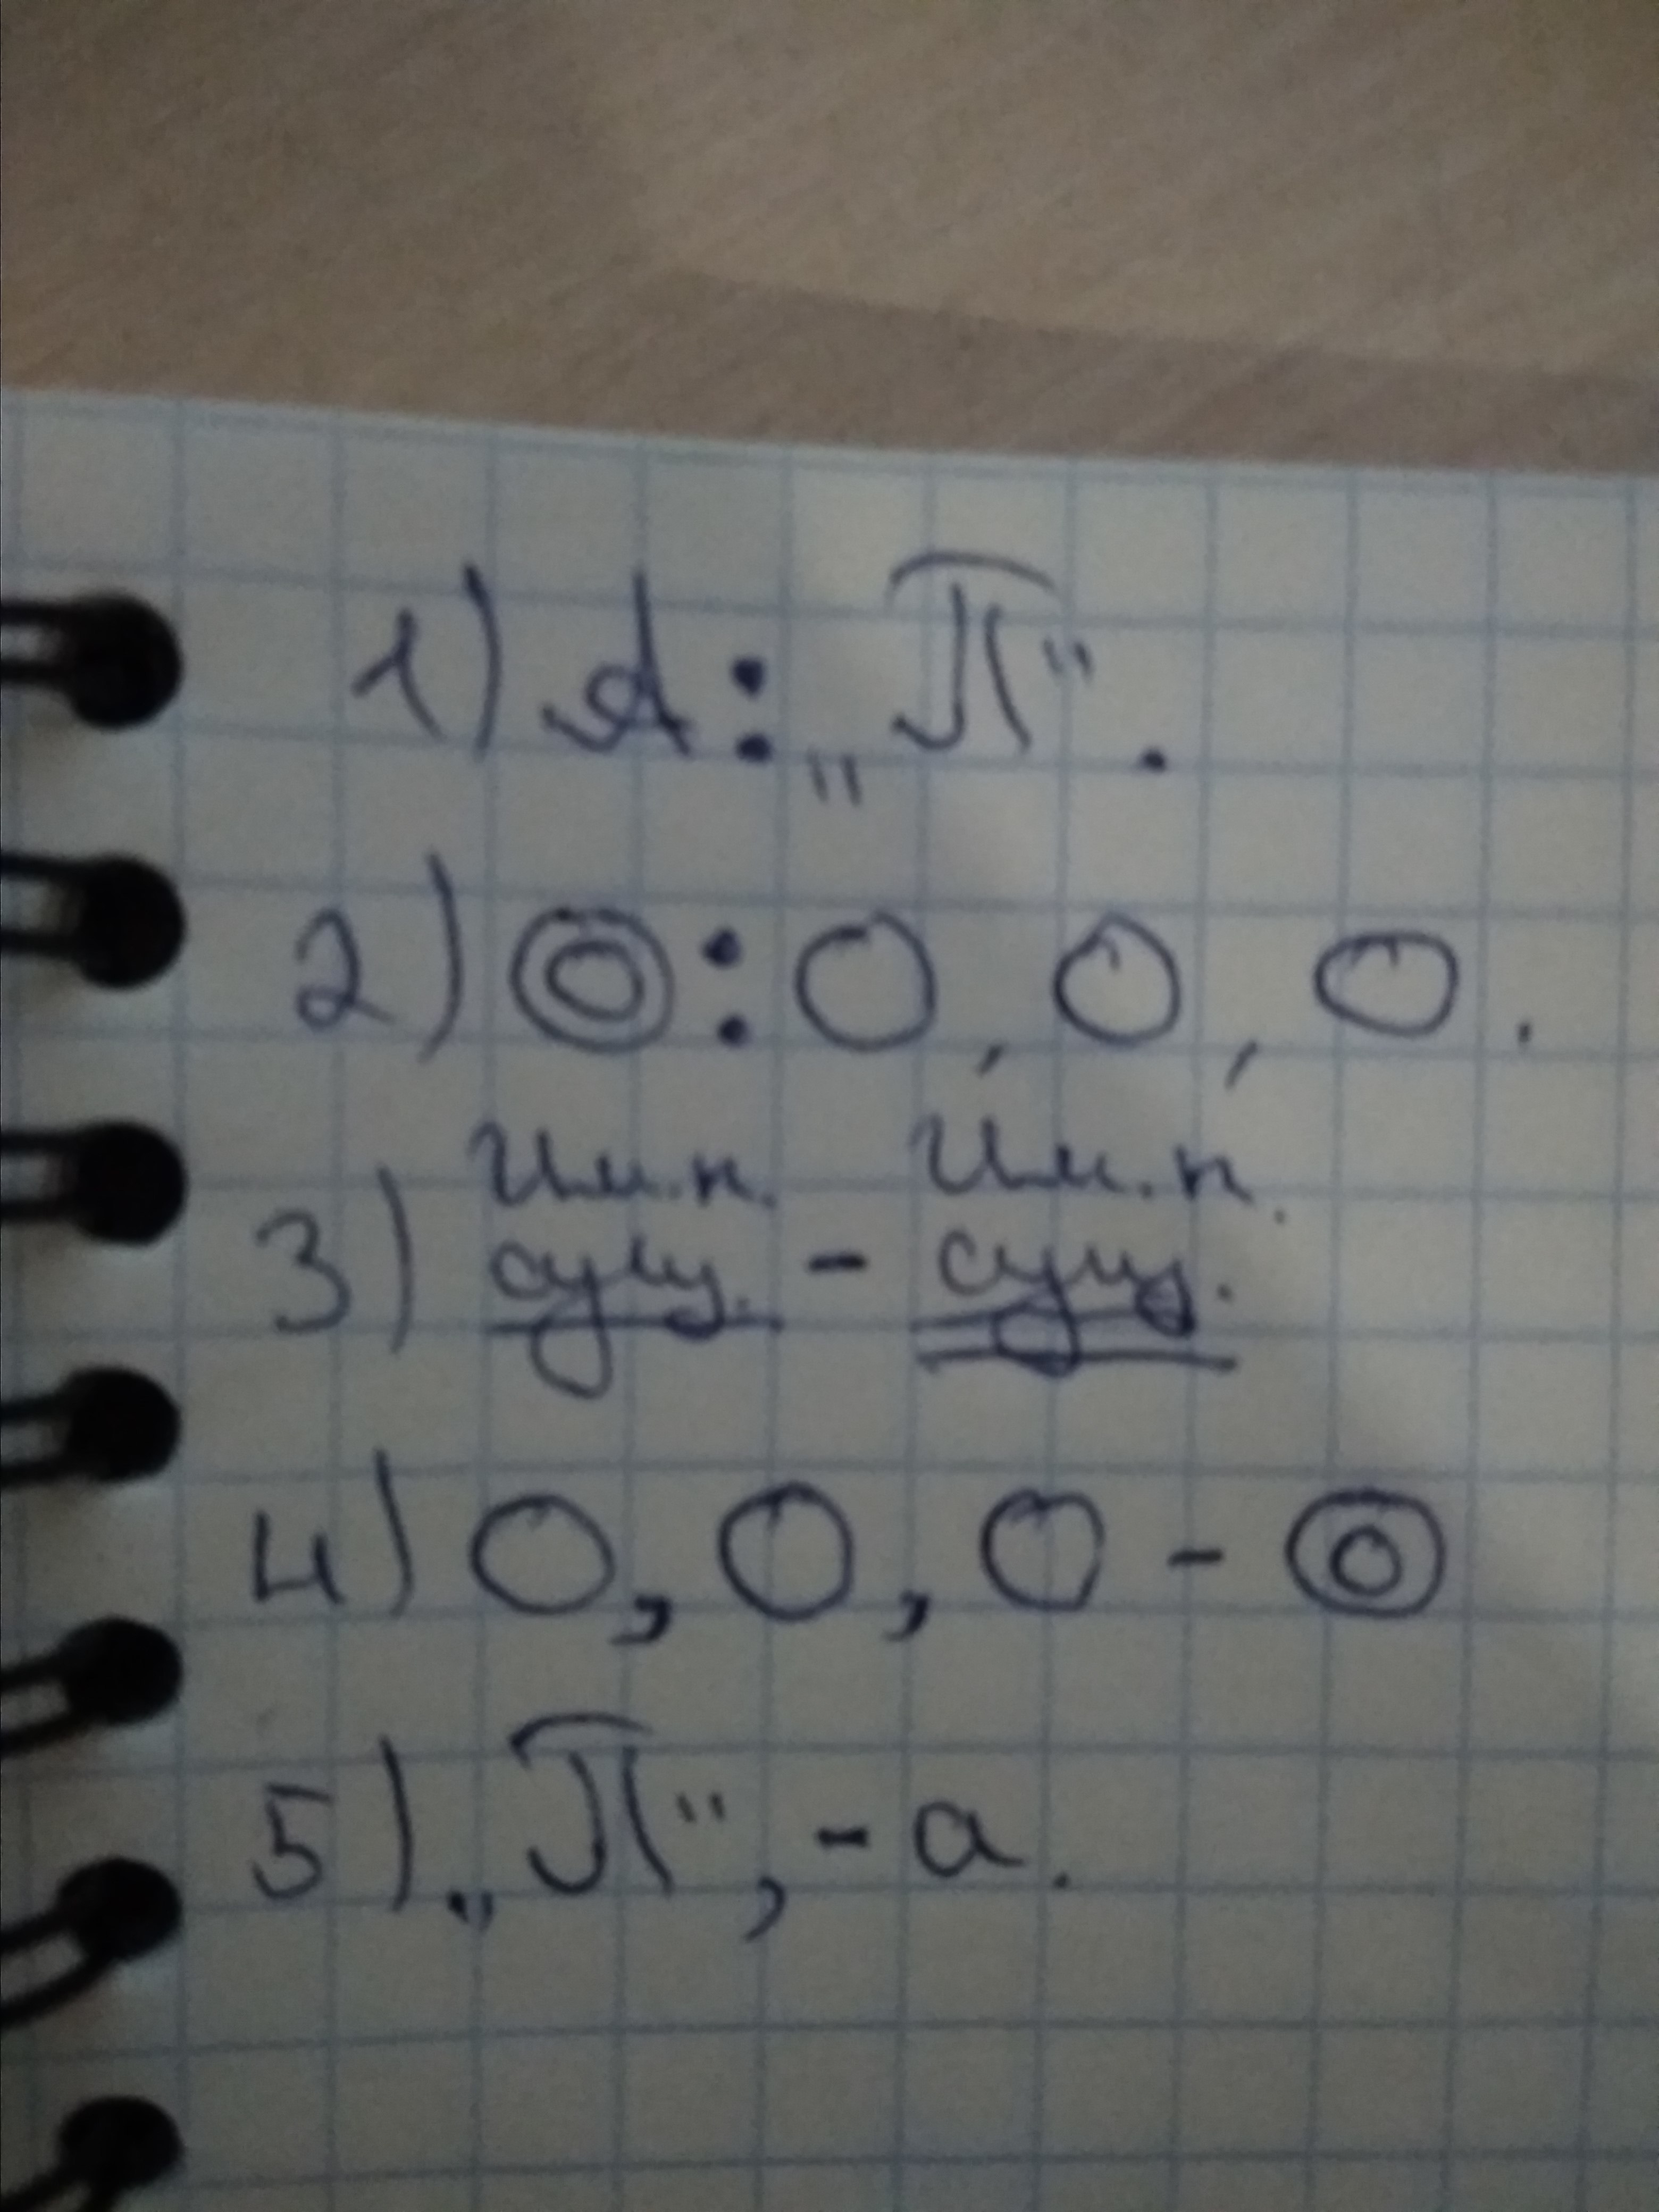 1) А: „П“.
2) ⊚: О, О, О.
Им.п. Им.п.
3) сущ. - сущ.
4) О, О, О - ⊚
5) „П“, - а.